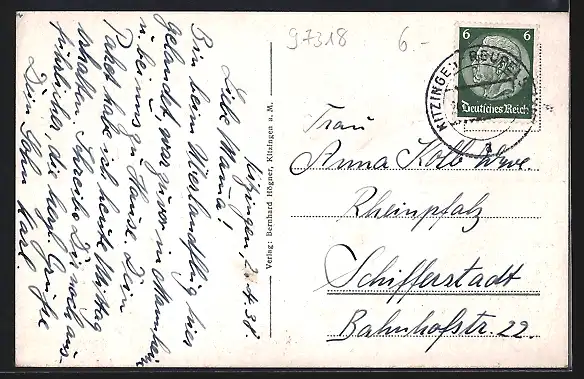 97318
6.-
6 6
Deutsches Reich
KITZINGEN
Kitzingen, 2.4.38.
Liebe Mama!
Bin beim Überlandflug hier
gelandet, war zuvor in Mannheim
u. bei uns zu Hause. Dein
Paket habe ich heute Mittag
erhalten. Schreibe Dir noch aus-
führlicher, die herzl. Grüße
Dein Sohn Karl.
Verlag: Bernhard Högner, Kitzingen a. M.
Frau
Anna Kolb Wwe.
Rheinpfalz
Schifferstadt
Bahnhofstr. 22.